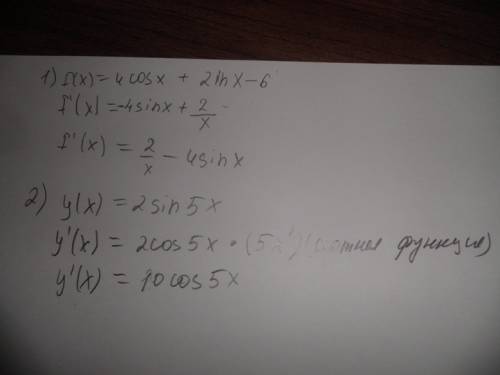 1) f(x) = 4cosx + 2lnx - 6
f'(x) = -4sinx + 2/x
f'(x) = 2/x - 4sinx
2) y(x) = 2sin5x
y'(x) = 2cos5x • (5x') функция)
y'(x) = 10cos5x